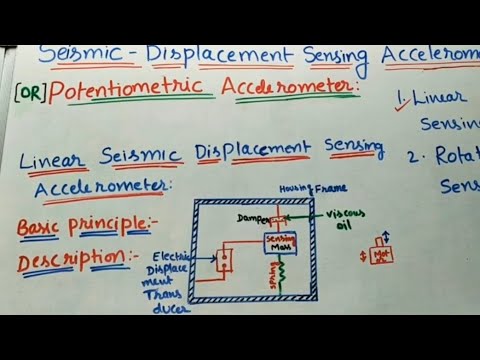 Seismic - Displacement Sensing Accelerome
[OR] Potentiometric Accelerometer:
1. Linear
Sensing
2. Rota
Sens
Linear Seismic Displacement Sensing
Accelerometer:
Basic principle:-
Description:-
Housing Frame
Damper
viscous
oil
Sensing
Mass
spring
Electric
Displace
ment
Trans
ducer